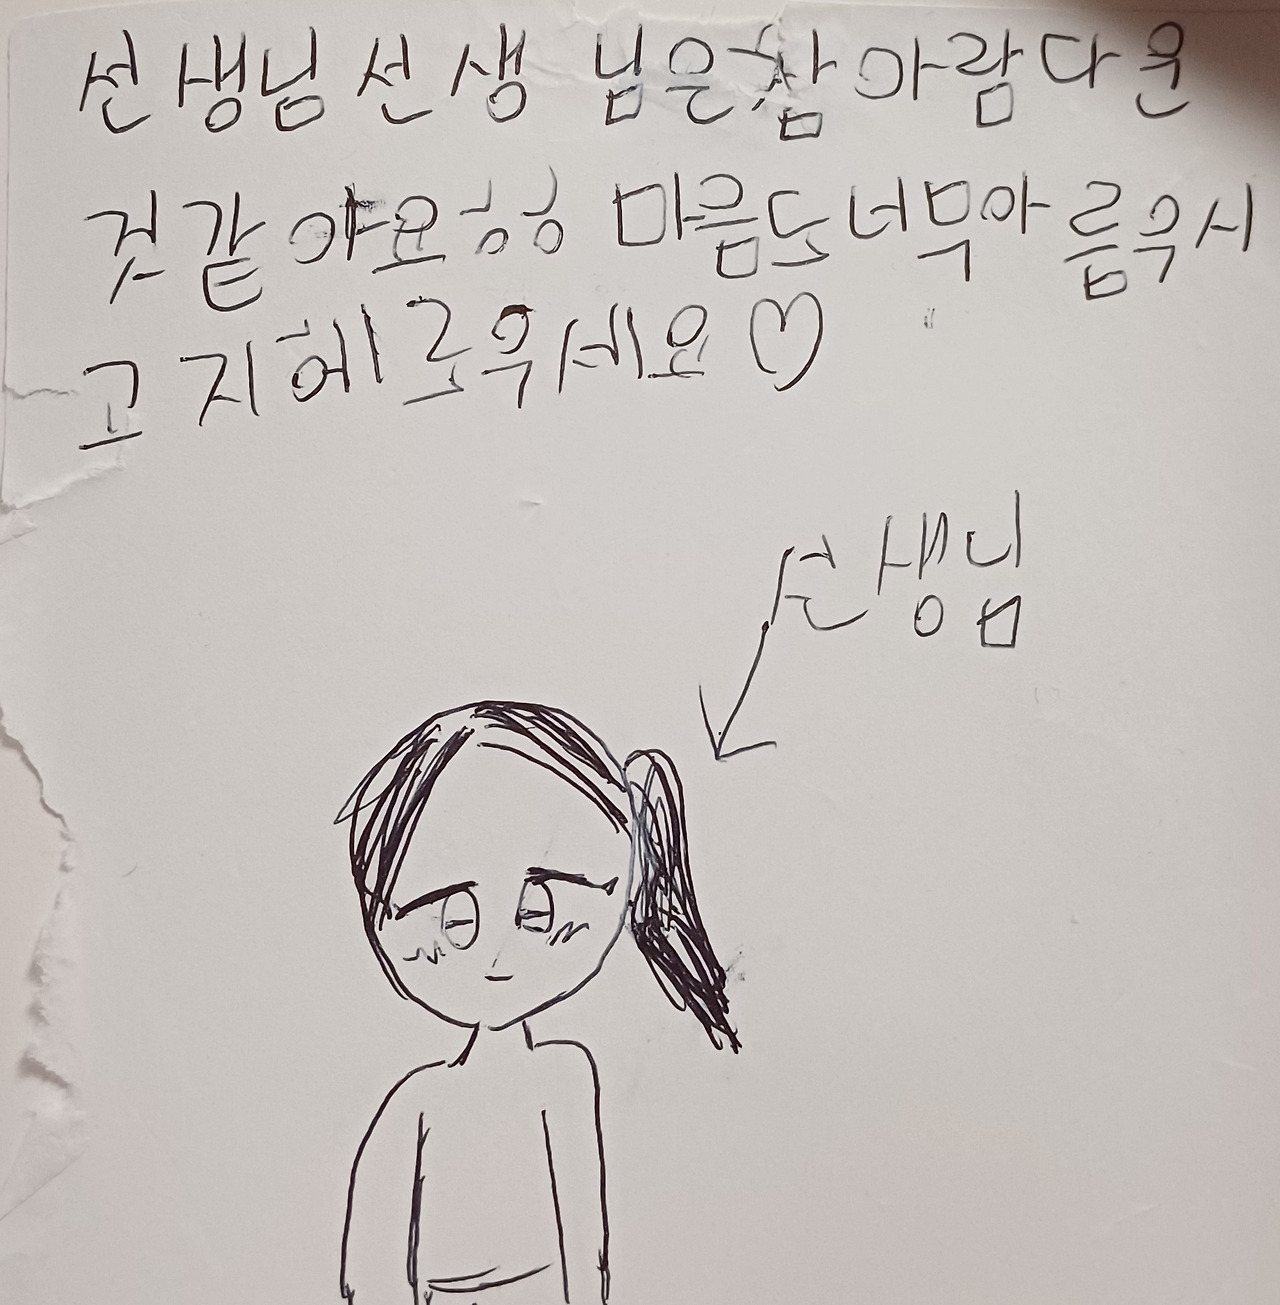 선생님선생 님은참 아람다운
것같아요ㅎㅎ 마음도너무아 름우시
고 지헤로우세요♡
선생님